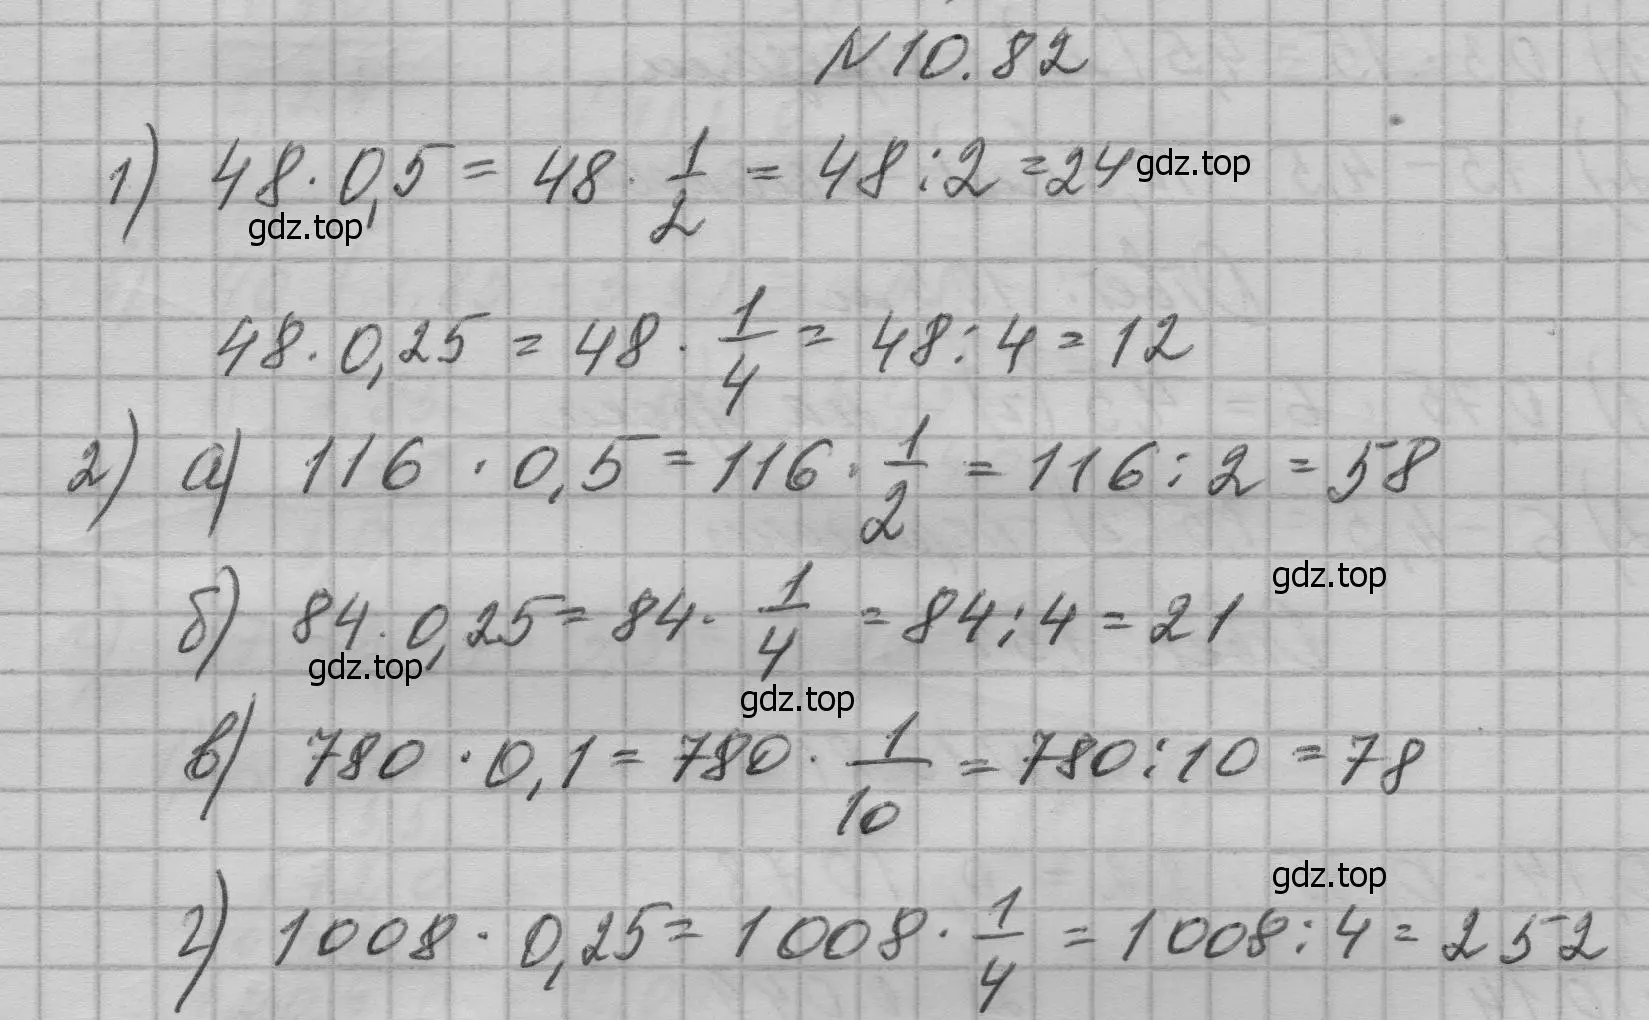 N 10.82
1) 48 · 0,5 = 48 · 1/2 = 48 : 2 = 24 gdz.top
gdz.top
48 · 0,25 = 48 · 1/4 = 48 : 4 = 12
2) а) 116 · 0,5 = 116 · 1/2 = 116 : 2 = 58
gdz.top
б) 84 · 0,25 = 84 · 1/4 = 84 : 4 = 21
gdz.top
gdz.top
в) 780 · 0,1 = 780 · 1/10 = 780 : 10 = 78
gdz.top
г) 1008 · 0,25 = 1008 · 1/4 = 1008 : 4 = 252